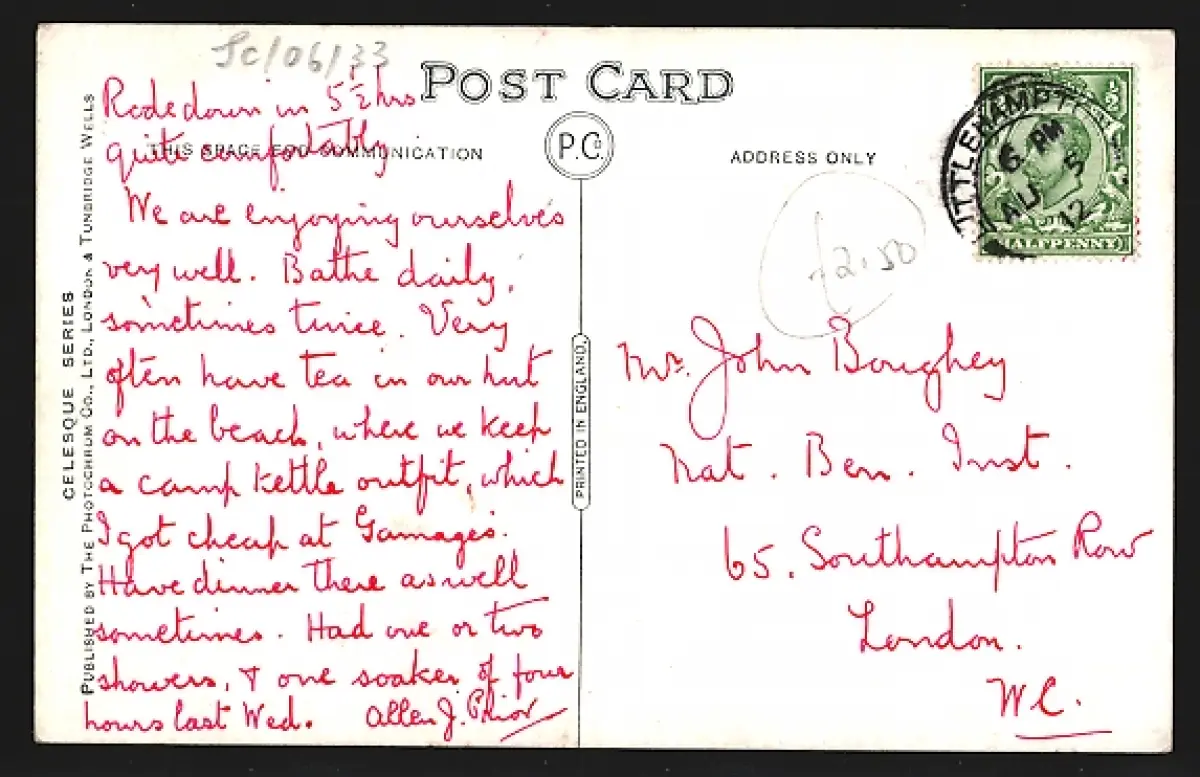 JC/06/33
POST CARD
THIS SPACE FOR COMMUNICATION
P.C.
ADDRESS ONLY
Rode down in 5½ hrs
quite comfortably
We are enjoying ourselves
very well. Bathe daily,
sometimes twice. Very
often have tea in our hut
on the beach, where we keep
a camp kettle outfit, which
I got cheap at Gamages.
Have dinner there as well
sometimes. Had one or two
showers, & one soaker of four
hours last Wed. Allen J. Prior
CELESQUE SERIES
PUBLISHED BY THE PHOTOCHROM CO., LTD., LONDON & TUNBRIDGE WELLS
PRINTED IN ENGLAND.
LITTLEHAMPTON
6 PM
AU 5
12
½
HALFPENNY
£2.50
Mr. John Boughey
Nat. Ben. Inst.
65. Southampton Row
London.
W.C.